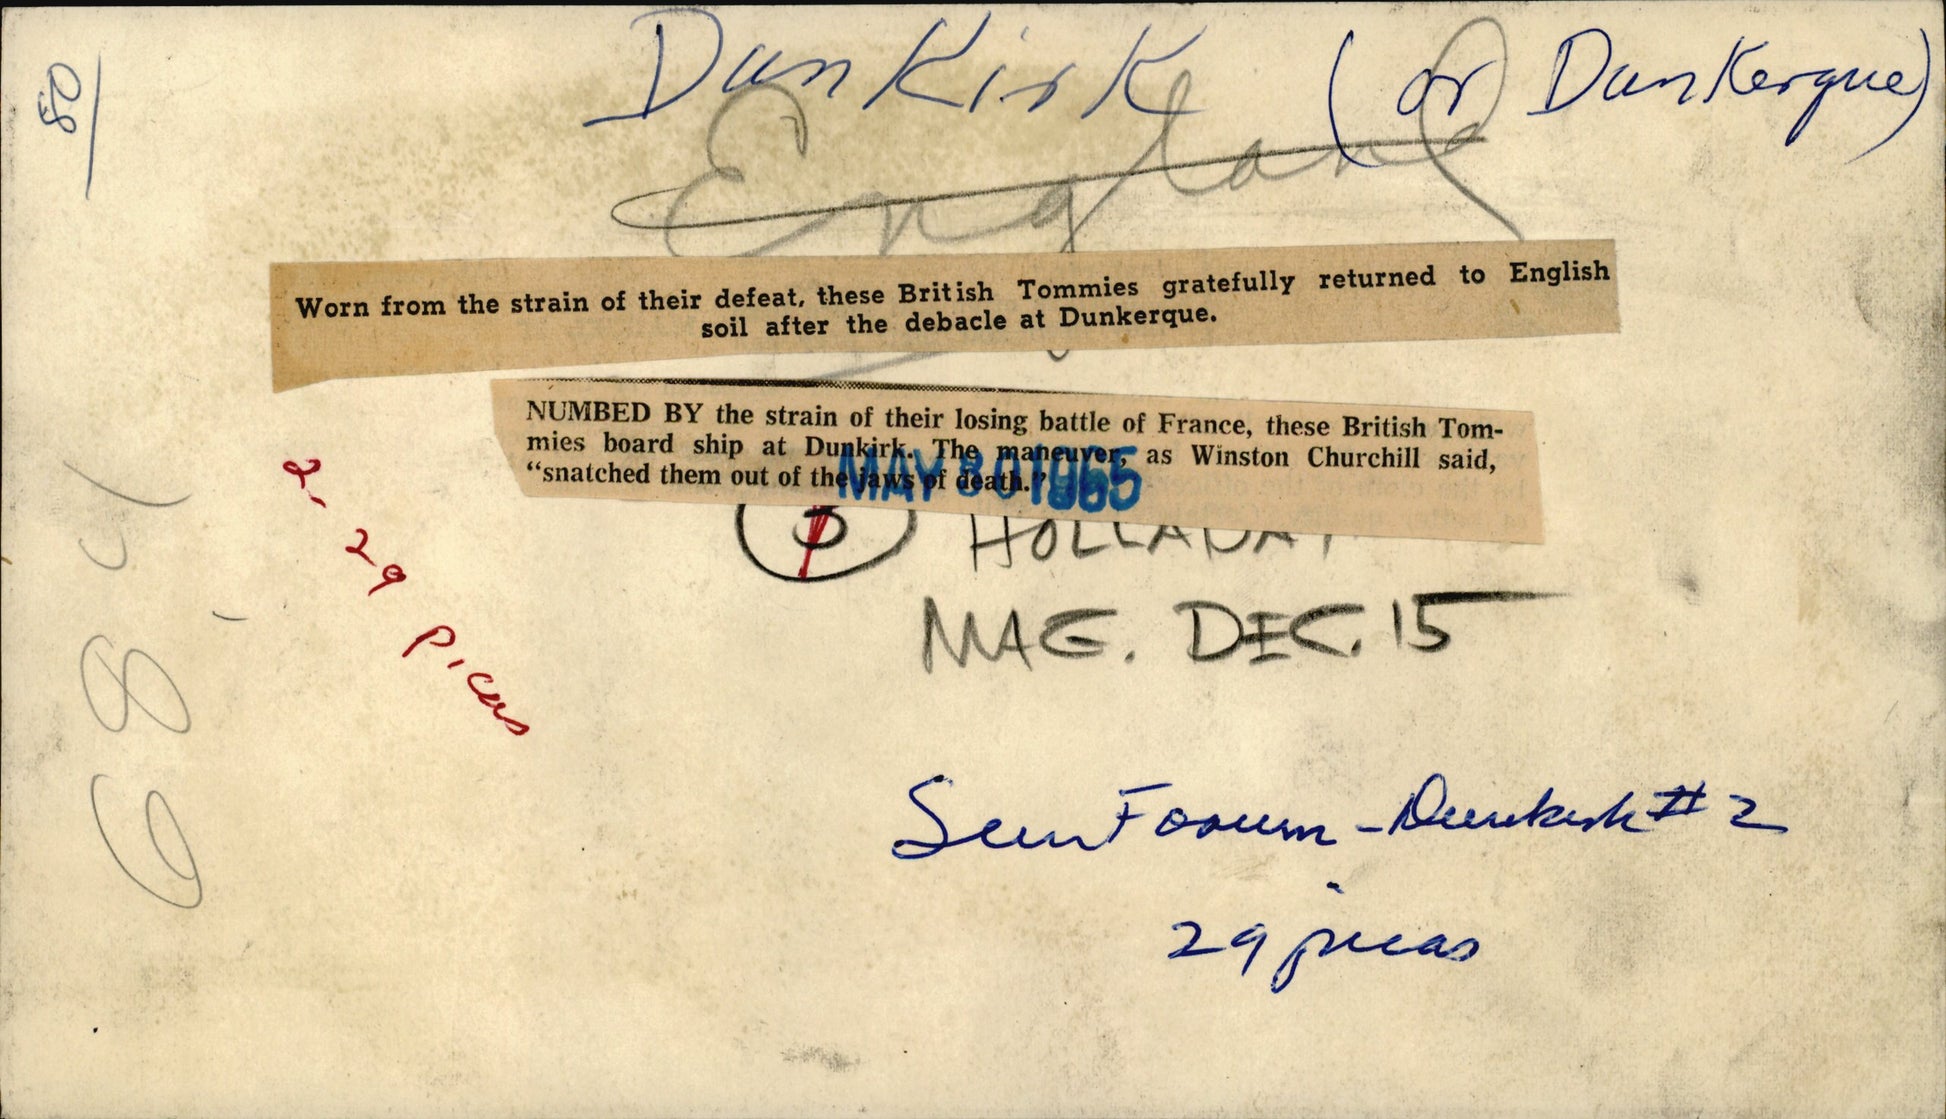 Dunkirk (or Dunkerque)
England
Worn from the strain of their defeat, these British Tommies gratefully returned to English
soil after the debacle at Dunkerque.
NUMBED BY the strain of their losing battle of France, these British Tom-
mies board ship at Dunkirk. The maneuver, as Winston Churchill said,
“snatched them out of the jaws of death.”
MAY 30 1965
3 HOLLADAY
MAG. DEC. 15
2- 29 picas
Sun Forum - Dunkirk # 2
29 picas